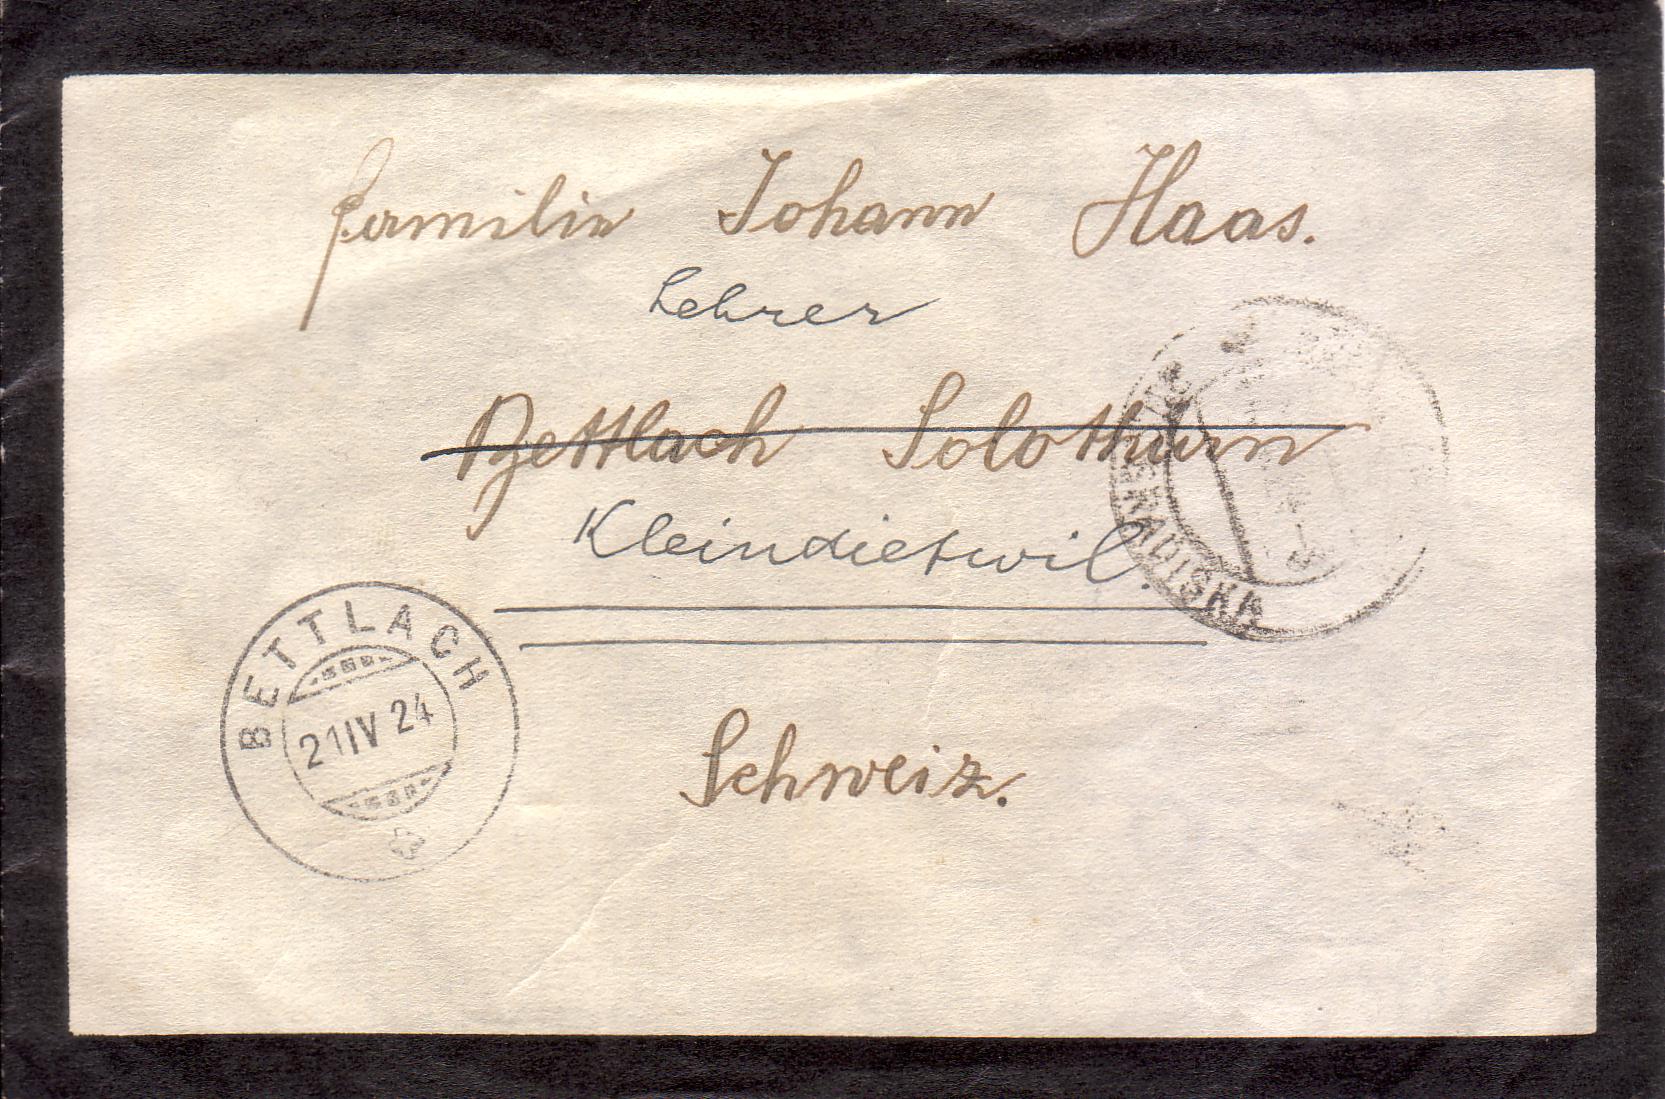 Familie Johann Haas.
Lehrer
Bettlach Solothurn
Kleindietwil.
Schweiz.
BETTLACH
21 IV 24
GRADISKA